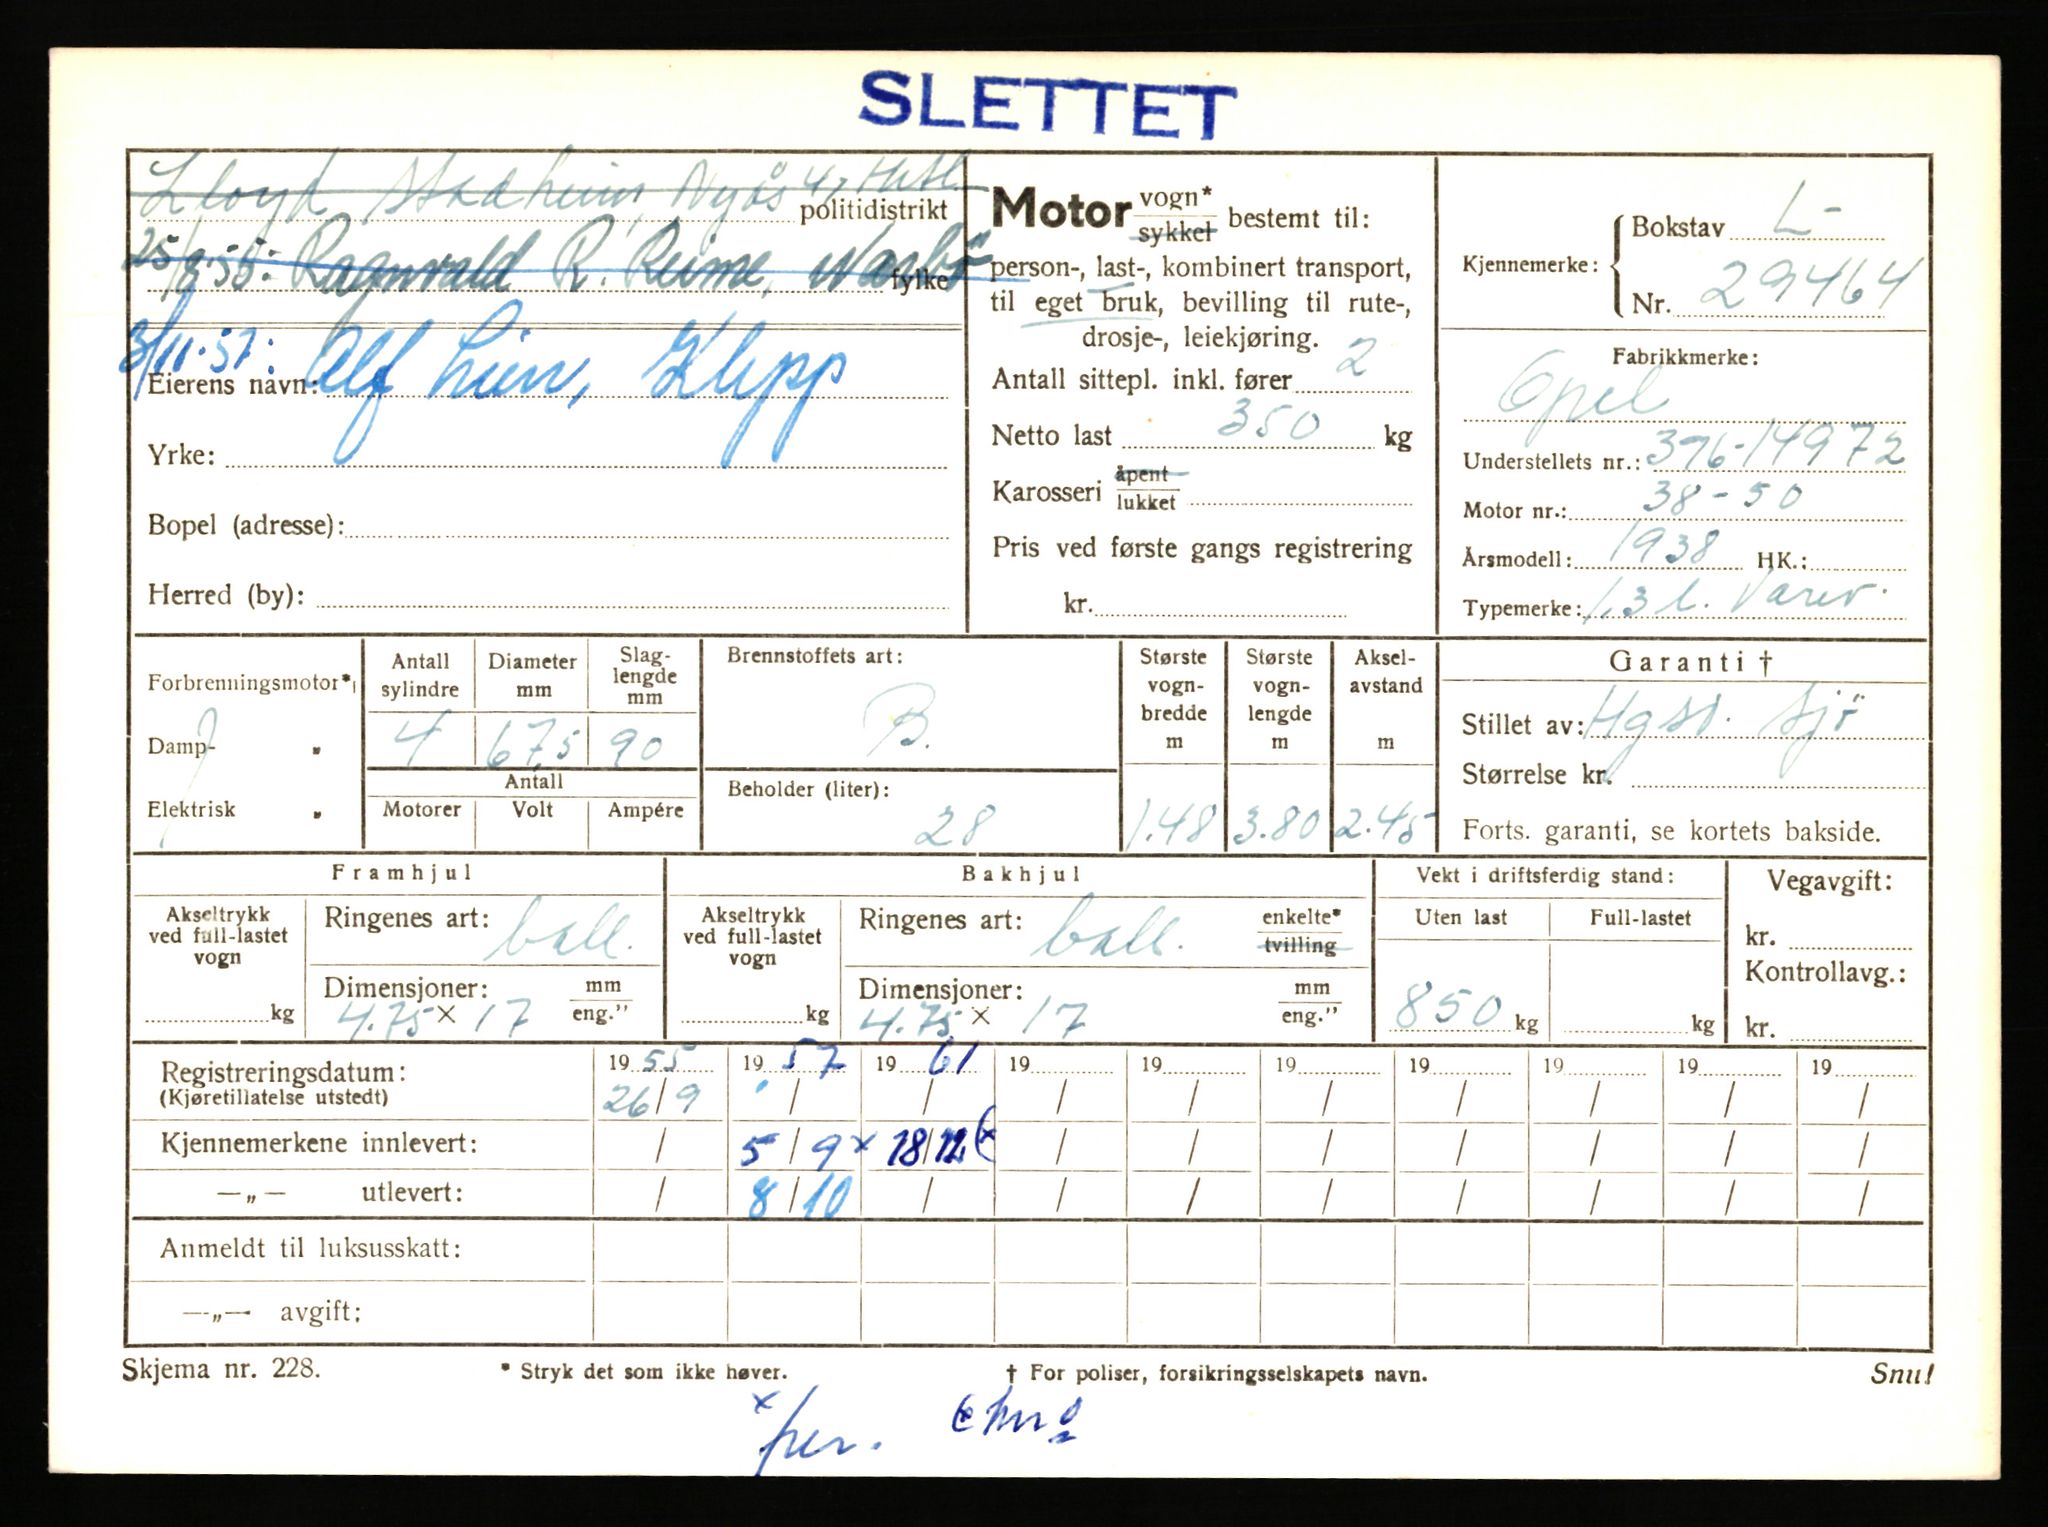 SLETTET
Lloyd Stadheim, Nyås
politidistrikt
25/8-55: Ragnvald R. Reime, Nærbø
fylke
3/11-57: Alf Lien, Klepp
Eierens navn:
Yrke:
Bopel (adresse):
Herred (by):
Motor vogn* sykkel bestemt til:
person-, last-, kombinert transport,
til eget bruk, bevilling til rute-,
drosje-, leiekjøring.
Antall sittepl. inkl. fører 2
Netto last 350 kg
Karosseri åpent lukket
Pris ved første gangs registrering
kr.
Kjennemerke: Bokstav L-
Nr. 29464
Fabrikkmerke:
Opel
Understellets nr.: 376-14972
Motor nr.: 38-50
Årsmodell: 1938 HK.:
Typemerke: 1,3 l. Varev.
Forbrenningsmotor*
Damp- „
Elektrisk „
Antall sylindre Diameter mm Slag-lengde mm
4 67,5 90
Antall
Motorer Volt Ampére
Brennstoffets art:
B.
Beholder (liter):
28
Største vogn-bredde m Største vogn-lengde m Aksel-avstand m
1.48 3.80 2.45
Garanti †
Stillet av: Hgsd. Sjø
Størrelse kr.
Forts. garanti, se kortets bakside.
Framhjul Bakhjul Vekt i driftsferdig stand: Vegavgift:
Akseltrykk ved full-lastet vogn kg
Ringenes art: ball.
Dimensjoner: mm eng."
4.75 x 17
Akseltrykk ved full-lastet vogn kg
Ringenes art: ball. enkelte* tvilling
Dimensjoner: mm eng."
4.75 x 17
Uten last Full-lastet
850 kg kg
kr.
Kontrollavg.:
kr.
Registreringsdatum: 1955 1957 1961 19 19 19 19 19 19 19
(Kjøretillatelse utstedt) 26/9 / / / / / / / / /
Kjennemerkene innlevert: / 5/9 x 18/12 (x / / / / / / /
—„— utlevert: / 8/10 / / / / / / / /
Anmeldt til luksusskatt:
—„— avgift:
Skjema nr. 228. * Stryk det som ikke høver. † For poliser, forsikringsselskapets navn. Snu!
x per.